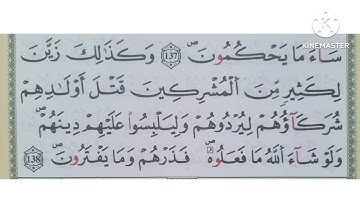 KINEMASTER
سَآءَ مَا يَحْكُمُونَ ١٣٦ وَكَذَٰلِكَ زَيَّنَ
لِكَثِيرٍ مِّنَ ٱلْمُشْرِكِينَ قَتْلَ أَوْلَٰدِهِمْ
شُرَكَآؤُهُمْ لِيُرْدُوهُمْ وَلِيَلْبِسُوا۟ عَلَيْهِمْ دِينَهُمْ ۖ
وَلَوْ شَآءَ ٱللَّهُ مَا فَعَلُوهُ ۖ فَذَرْهُمْ وَمَا يَفْتَرُونَ ١٣٧